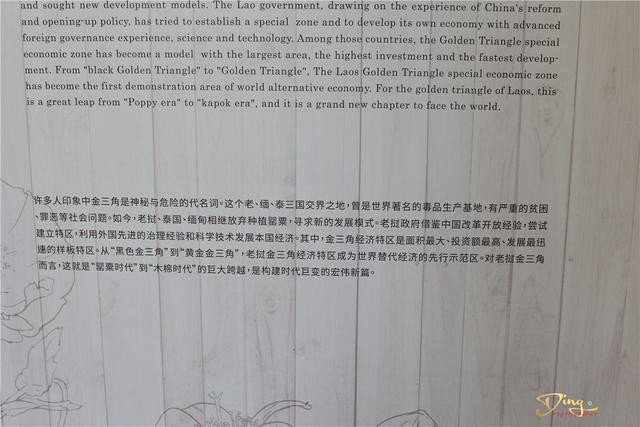 and sought new development models. The Lao government, drawing on the experience of China's reform
and opening-up policy, has tried to establish a special zone and to develop its own economy with advanced
foreign governance experience, science and technology. Among those countries, the Golden Triangle special
economic zone has become a model with the largest area, the highest investment and the fastest develop-
ment. From "black Golden Triangle" to "Golden Triangle", The Laos Golden Triangle special economic zone
has become the first demonstration area of world alternative economy. For the golden triangle of Laos, this
is a great leap from "Poppy era" to "kapok era", and it is a grand new chapter to face the world.
许多人印象中金三角是神秘与危险的代名词。这个老、缅、泰三国交界之地，曾是世界著名的毒品生产基地，有严重的贫困
、罪恶等社会问题。如今，老挝、泰国、缅甸相继放弃种植罂粟，寻求新的发展模式。老挝政府借鉴中国改革开放经验，尝试
建立特区，利用外国先进的治理经验和科学技术发展本国经济。其中，金三角经济特区是面积最大、投资额最高、发展最迅
速的样板特区。从“黑色金三角”到“黄金金三角”，老挝金三角经济特区成为世界替代经济的先行示范区。对老挝金三角
而言，这就是“罂粟时代”到“木棉时代”的巨大跨越，是构建时代巨变的宏伟新篇。
Ding
PHOTOGRAPHY